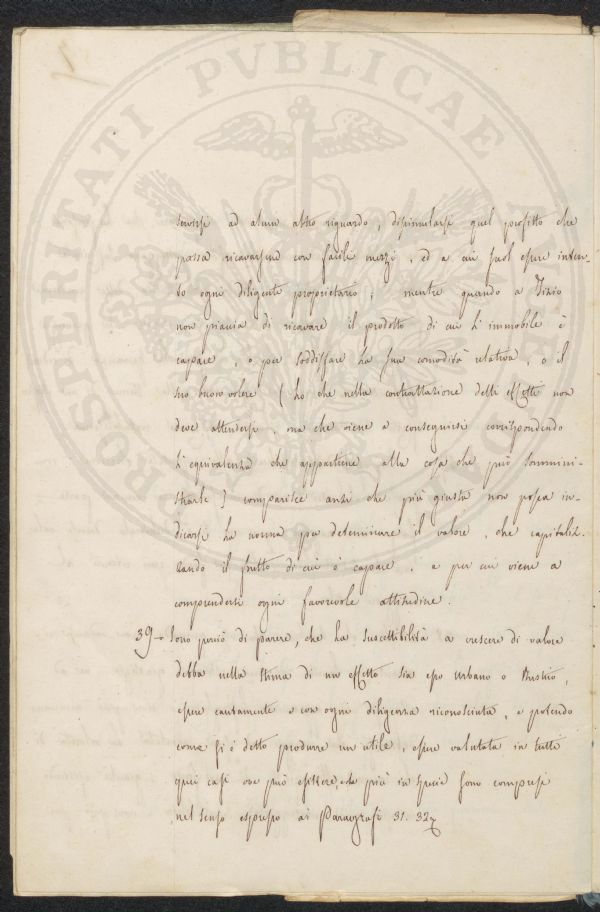 PROSPERITATI PVBLICAE
aversi ad alcun altro riguardo, dissimularsi quel profitto che
possa ricavarsene con facili mezzi, ed a cui suol essere inten-
to ogni diligente proprietario; mentre quando a Tizio
non piaccia di ricavare il prodotto di cui l'immobile è
capace, o per soddisfare la sua comodità relativa, o il
suo buon volere (lo che nella contrattazione delli effetti non
deve attendersi, ma che viene a conseguirsi corrispondendo
l'equivalenza che appartiene alla cosa che può sommini-
strarle) comparisce anzi che più giusta non possa in-
dicarsi la norma per determinare il valore, che capitaliz-
zando il frutto di cui è capace, e per cui viene a
comprendersi ogni favorevole attitudine.
39- Sono perciò di parere, che la suscettibilità a crescere di valore
debba nella stima di un effetto sia esso Urbano o Rustico,
essere cautamente e con ogni diligenza riconosciuta, e potendo
come si è detto produrre un utile, essere valutata in tutti
quei casi ove può esistere, che più in specie sono compresi
nel senso espresso ai Paragrafi 31. 32